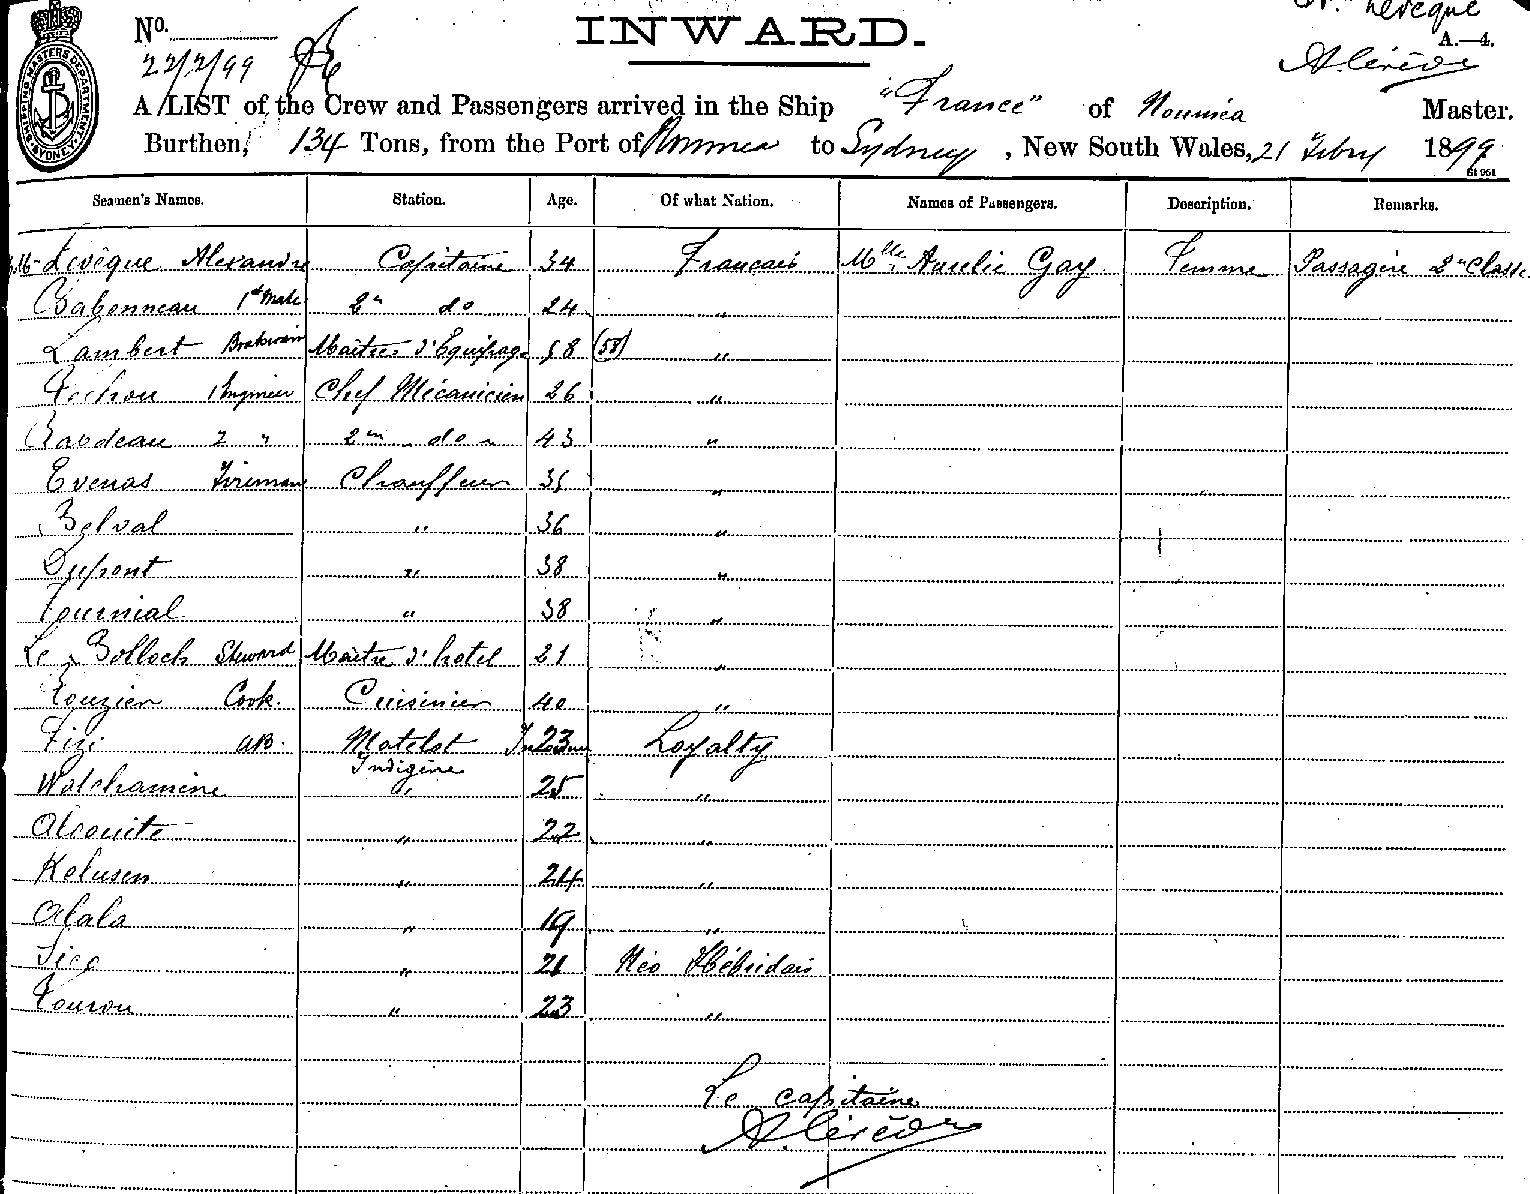 INWARD.
No.
A. Levêque
A.—4.
22/2/99
SHIPPING MASTERS DEPARTMENT SYDNEY
A LIST of the Crew and Passengers arrived in the Ship "France" of Nouméa Master.
Burthen, 134 Tons, from the Port of Noumea to Sydney, New South Wales, 21 Febry 1899
Seamen's Names. Station. Age. Of what Nation. Names of Passengers. Description. Remarks.
Levêque Alexandre Capitaine 34 Francais Mlle Aurelie Gay Femme Passagère 2e Classe
Babonneau 1st Mate 2e do 24 "
Lambert Boatswain Maître d'Equipage 58 (58) "
Fochou 1 Engineer Chef Mécanicien 26 "
Baudeau 2 " 2em do 43 "
Evenas Fireman Chauffeur 35 "
Belval " 36 "
Dupont " 38 "
Fournial " 38 "
Le Bolloch Steward Maître d'hotel 21 "
Touzien Cook. Cuisinier 40 "
Fizi AB. Matelot 23 Loyalty
Indigène
Watchamine " 25 "
Alsouite " 22 "
Kelusen " 24 "
Alala " 19 "
Sico " 21 Néo Hébridais
Touron " 23 "
Le capitaine
A. Levêque